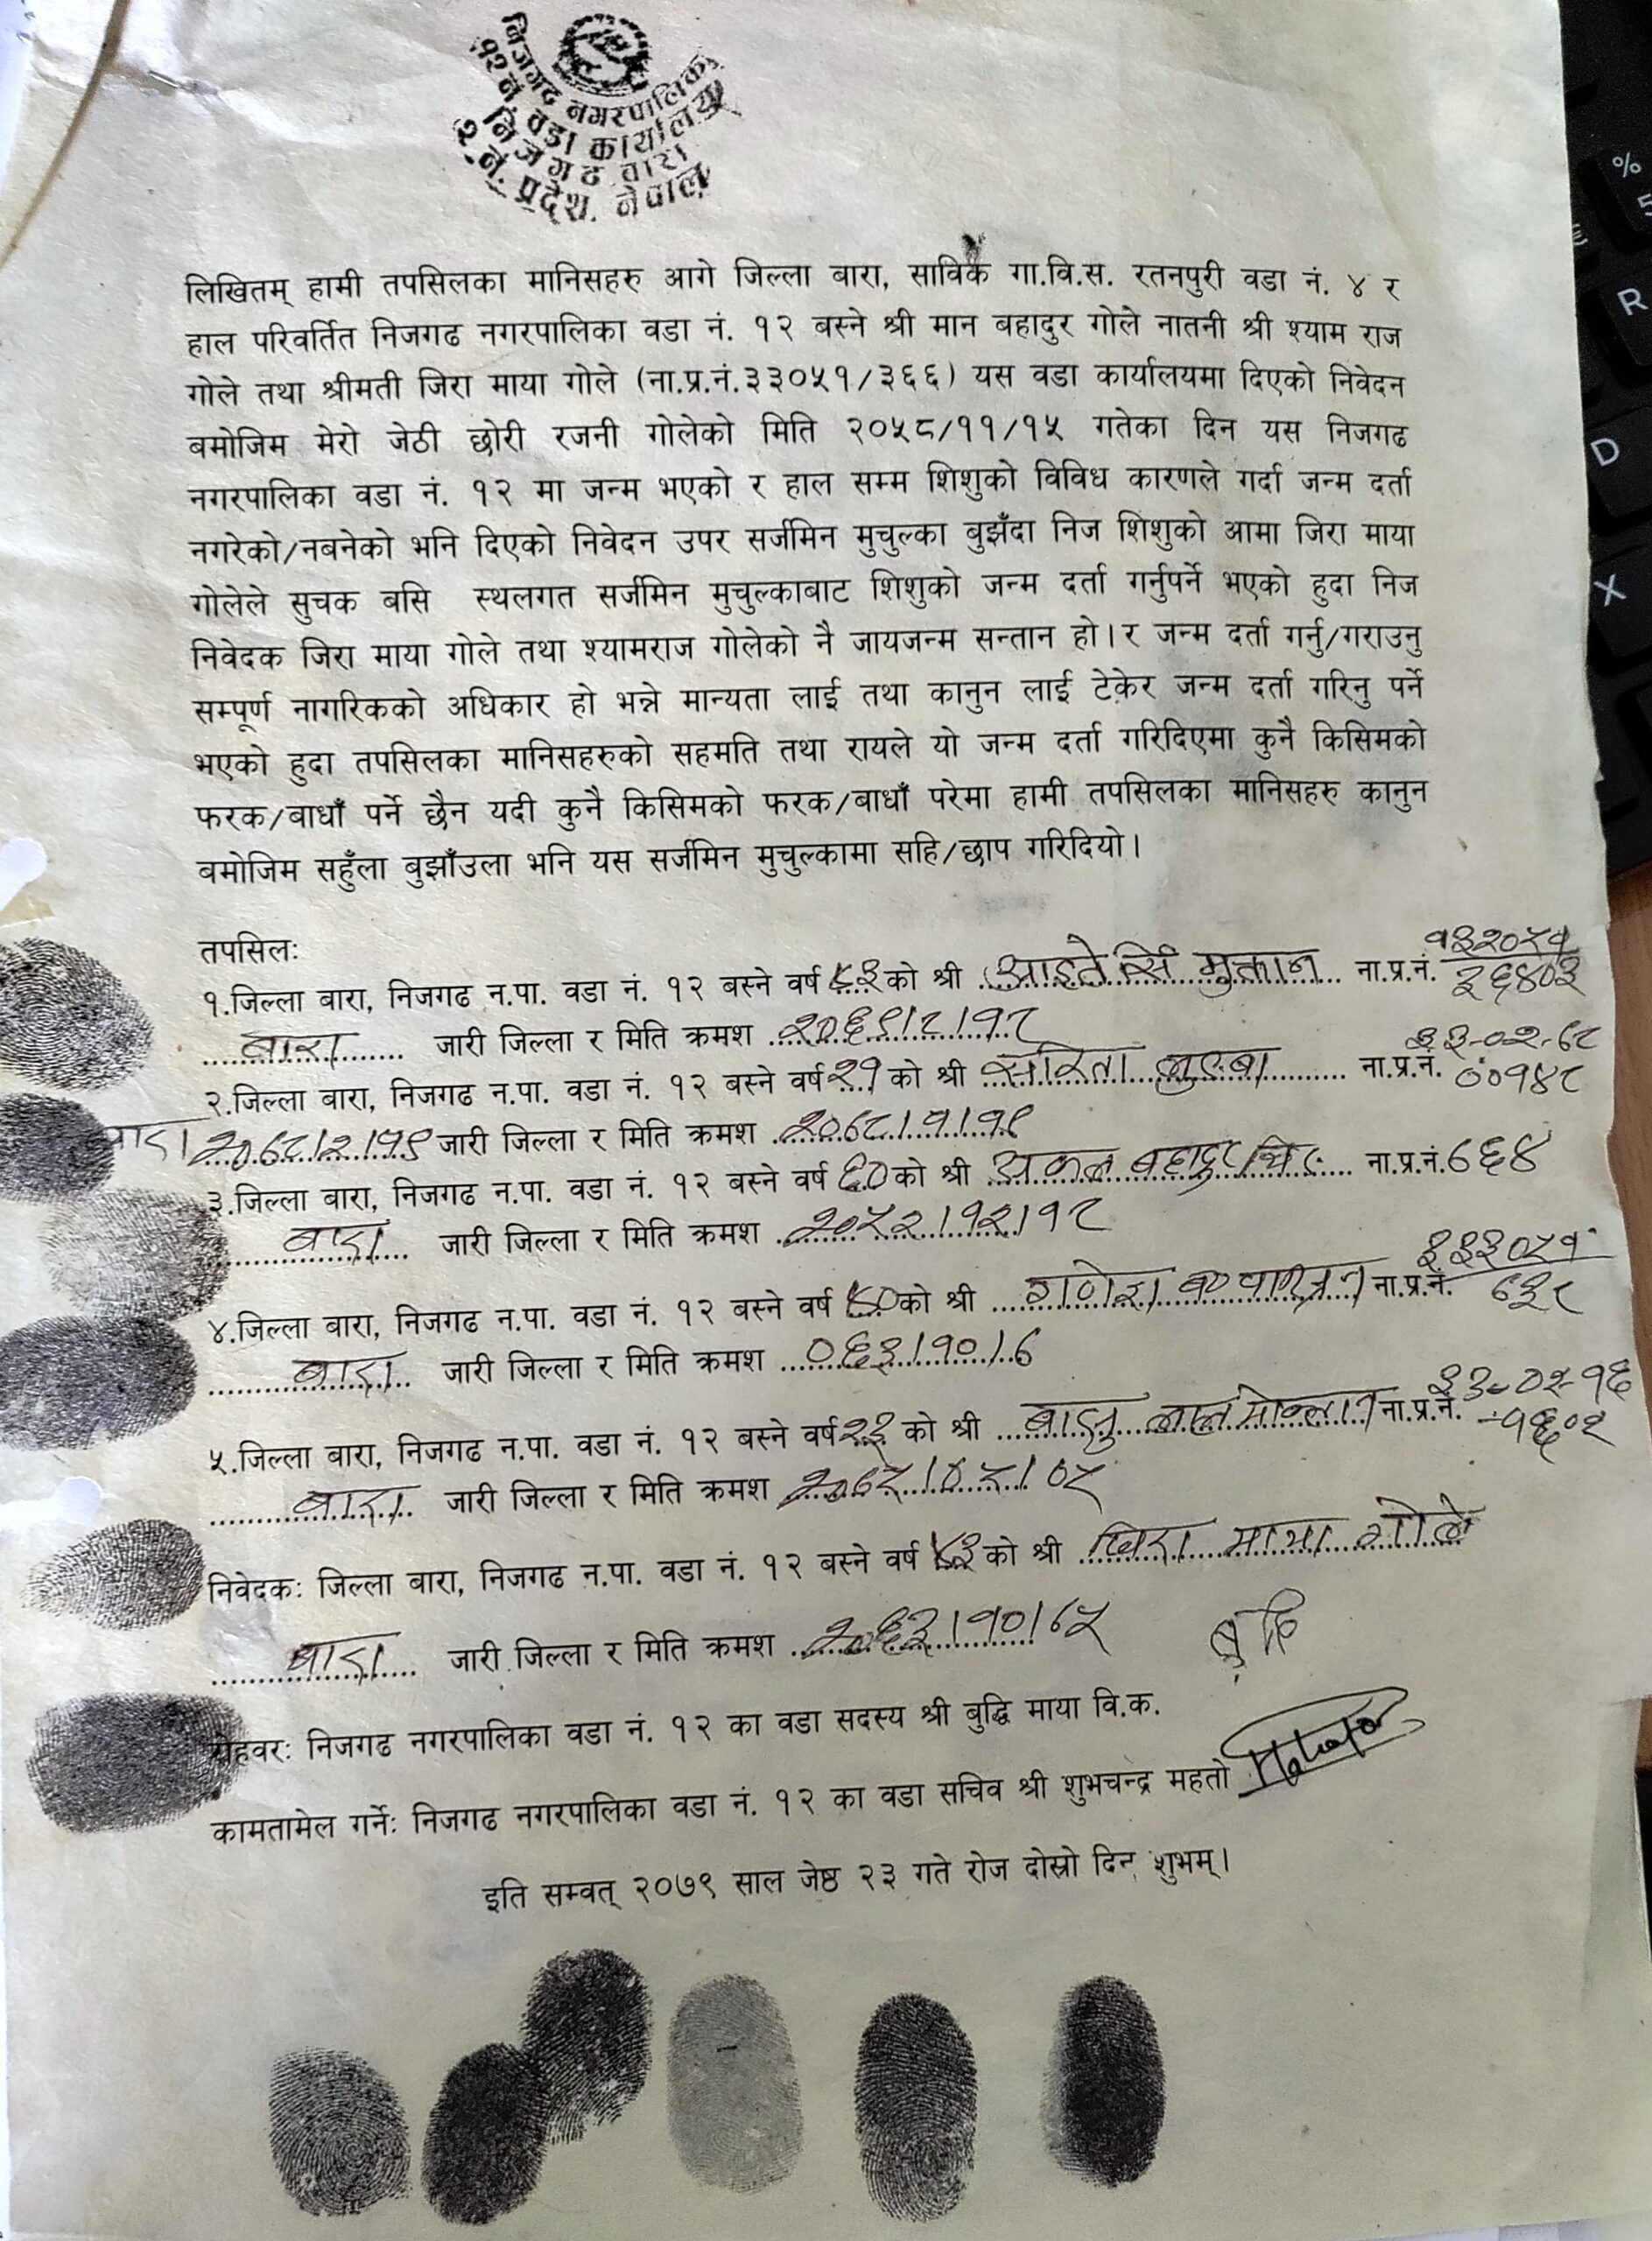 निजगढ नगरपालिका
१२ नं. वडा कार्यालय
निजगढ बारा
२ नं. प्रदेश, नेपाल
लिखितम् हामी तपसिलका मानिसहरु आगे जिल्ला बारा, साविक गा.वि.स. रतनपुरी वडा नं. ४ र
हाल परिवर्तित निजगढ नगरपालिका वडा नं. १२ बस्ने श्री मान बहादुर गोले नातनी श्री श्याम राज
गोले तथा श्रीमती जिरा माया गोले (ना.प्र.नं.३३०५१/३६६) यस वडा कार्यालयमा दिएको निवेदन
बमोजिम मेरो जेठी छोरी रजनी गोलेको मिति २०५८/११/१५ गतेका दिन यस निजगढ
नगरपालिका वडा नं. १२ मा जन्म भएको र हाल सम्म शिशुको विविध कारणले गर्दा जन्म दर्ता
नगरेको/नबनेको भनि दिएको निवेदन उपर सर्जमिन मुचुल्का बुझँदा निज शिशुको आमा जिरा माया
गोलेले सुचक बसि स्थलगत सर्जमिन मुचुल्काबाट शिशुको जन्म दर्ता गर्नुपर्ने भएको हुदा निज
निवेदक जिरा माया गोले तथा श्यामराज गोलेको नै जायजन्म सन्तान हो। र जन्म दर्ता गर्नु/गराउनु
सम्पूर्ण नागरिकको अधिकार हो भन्ने मान्यता लाई तथा कानुन लाई टेकेर जन्म दर्ता गरिनु पर्ने
भएको हुदा तपसिलका मानिसहरुको सहमति तथा रायले यो जन्म दर्ता गरिदिएमा कुनै किसिमको
फरक/बाधाँ पर्ने छैन यदी कुनै किसिमको फरक/बाधाँ परेमा हामी तपसिलका मानिसहरु कानुन
बमोजिम सहुँला बुझाँउला भनि यस सर्जमिन मुचुल्कामा सहि/छाप गरिदियो।
तपसिलः
१.जिल्ला बारा, निजगढ न.पा. वडा नं. १२ बस्ने वर्ष ५३ को श्री मुक्तान ना.प्र.नं.
बारा जारी जिल्ला र मिति क्रमश २०६९।८।१८
२.जिल्ला बारा, निजगढ न.पा. वडा नं. १२ बस्ने वर्ष २१ को श्री सरिता ना.प्र.नं. ३३-०२-७८ ००१४८
बारा २०७८।२।१९ जारी जिल्ला र मिति क्रमश २०७८।१।१९
३.जिल्ला बारा, निजगढ न.पा. वडा नं. १२ बस्ने वर्ष ६० को श्री बहादुर ना.प्र.नं. ७६४
बारा जारी जिल्ला र मिति क्रमश २०५२।१२।१८
४.जिल्ला बारा, निजगढ न.पा. वडा नं. १२ बस्ने वर्ष ५० को श्री गणेश ना.प्र.नं. ७३८
बारा जारी जिल्ला र मिति क्रमश ०६३।१०।७
५.जिल्ला बारा, निजगढ न.पा. वडा नं. १२ बस्ने वर्ष २३ को श्री लाल मोक्तान ना.प्र.नं.
बारा जारी जिल्ला र मिति क्रमश २०७५।०५।०५
निवेदकः जिल्ला बारा, निजगढ न.पा. वडा नं. १२ बस्ने वर्ष ५३ को श्री जिरा माया गोले
बारा जारी जिल्ला र मिति क्रमश २०६३।१०।७५
रोहवरः निजगढ नगरपालिका वडा नं. १२ का वडा सदस्य श्री बुद्धि माया वि.क.
कामतामेल गर्नेः निजगढ नगरपालिका वडा नं. १२ का वडा सचिव श्री शुभचन्द्र महतो
इति सम्वत् २०७९ साल जेष्ठ २३ गते रोज दोस्रो दिन शुभम्।
%
5
R
D
X